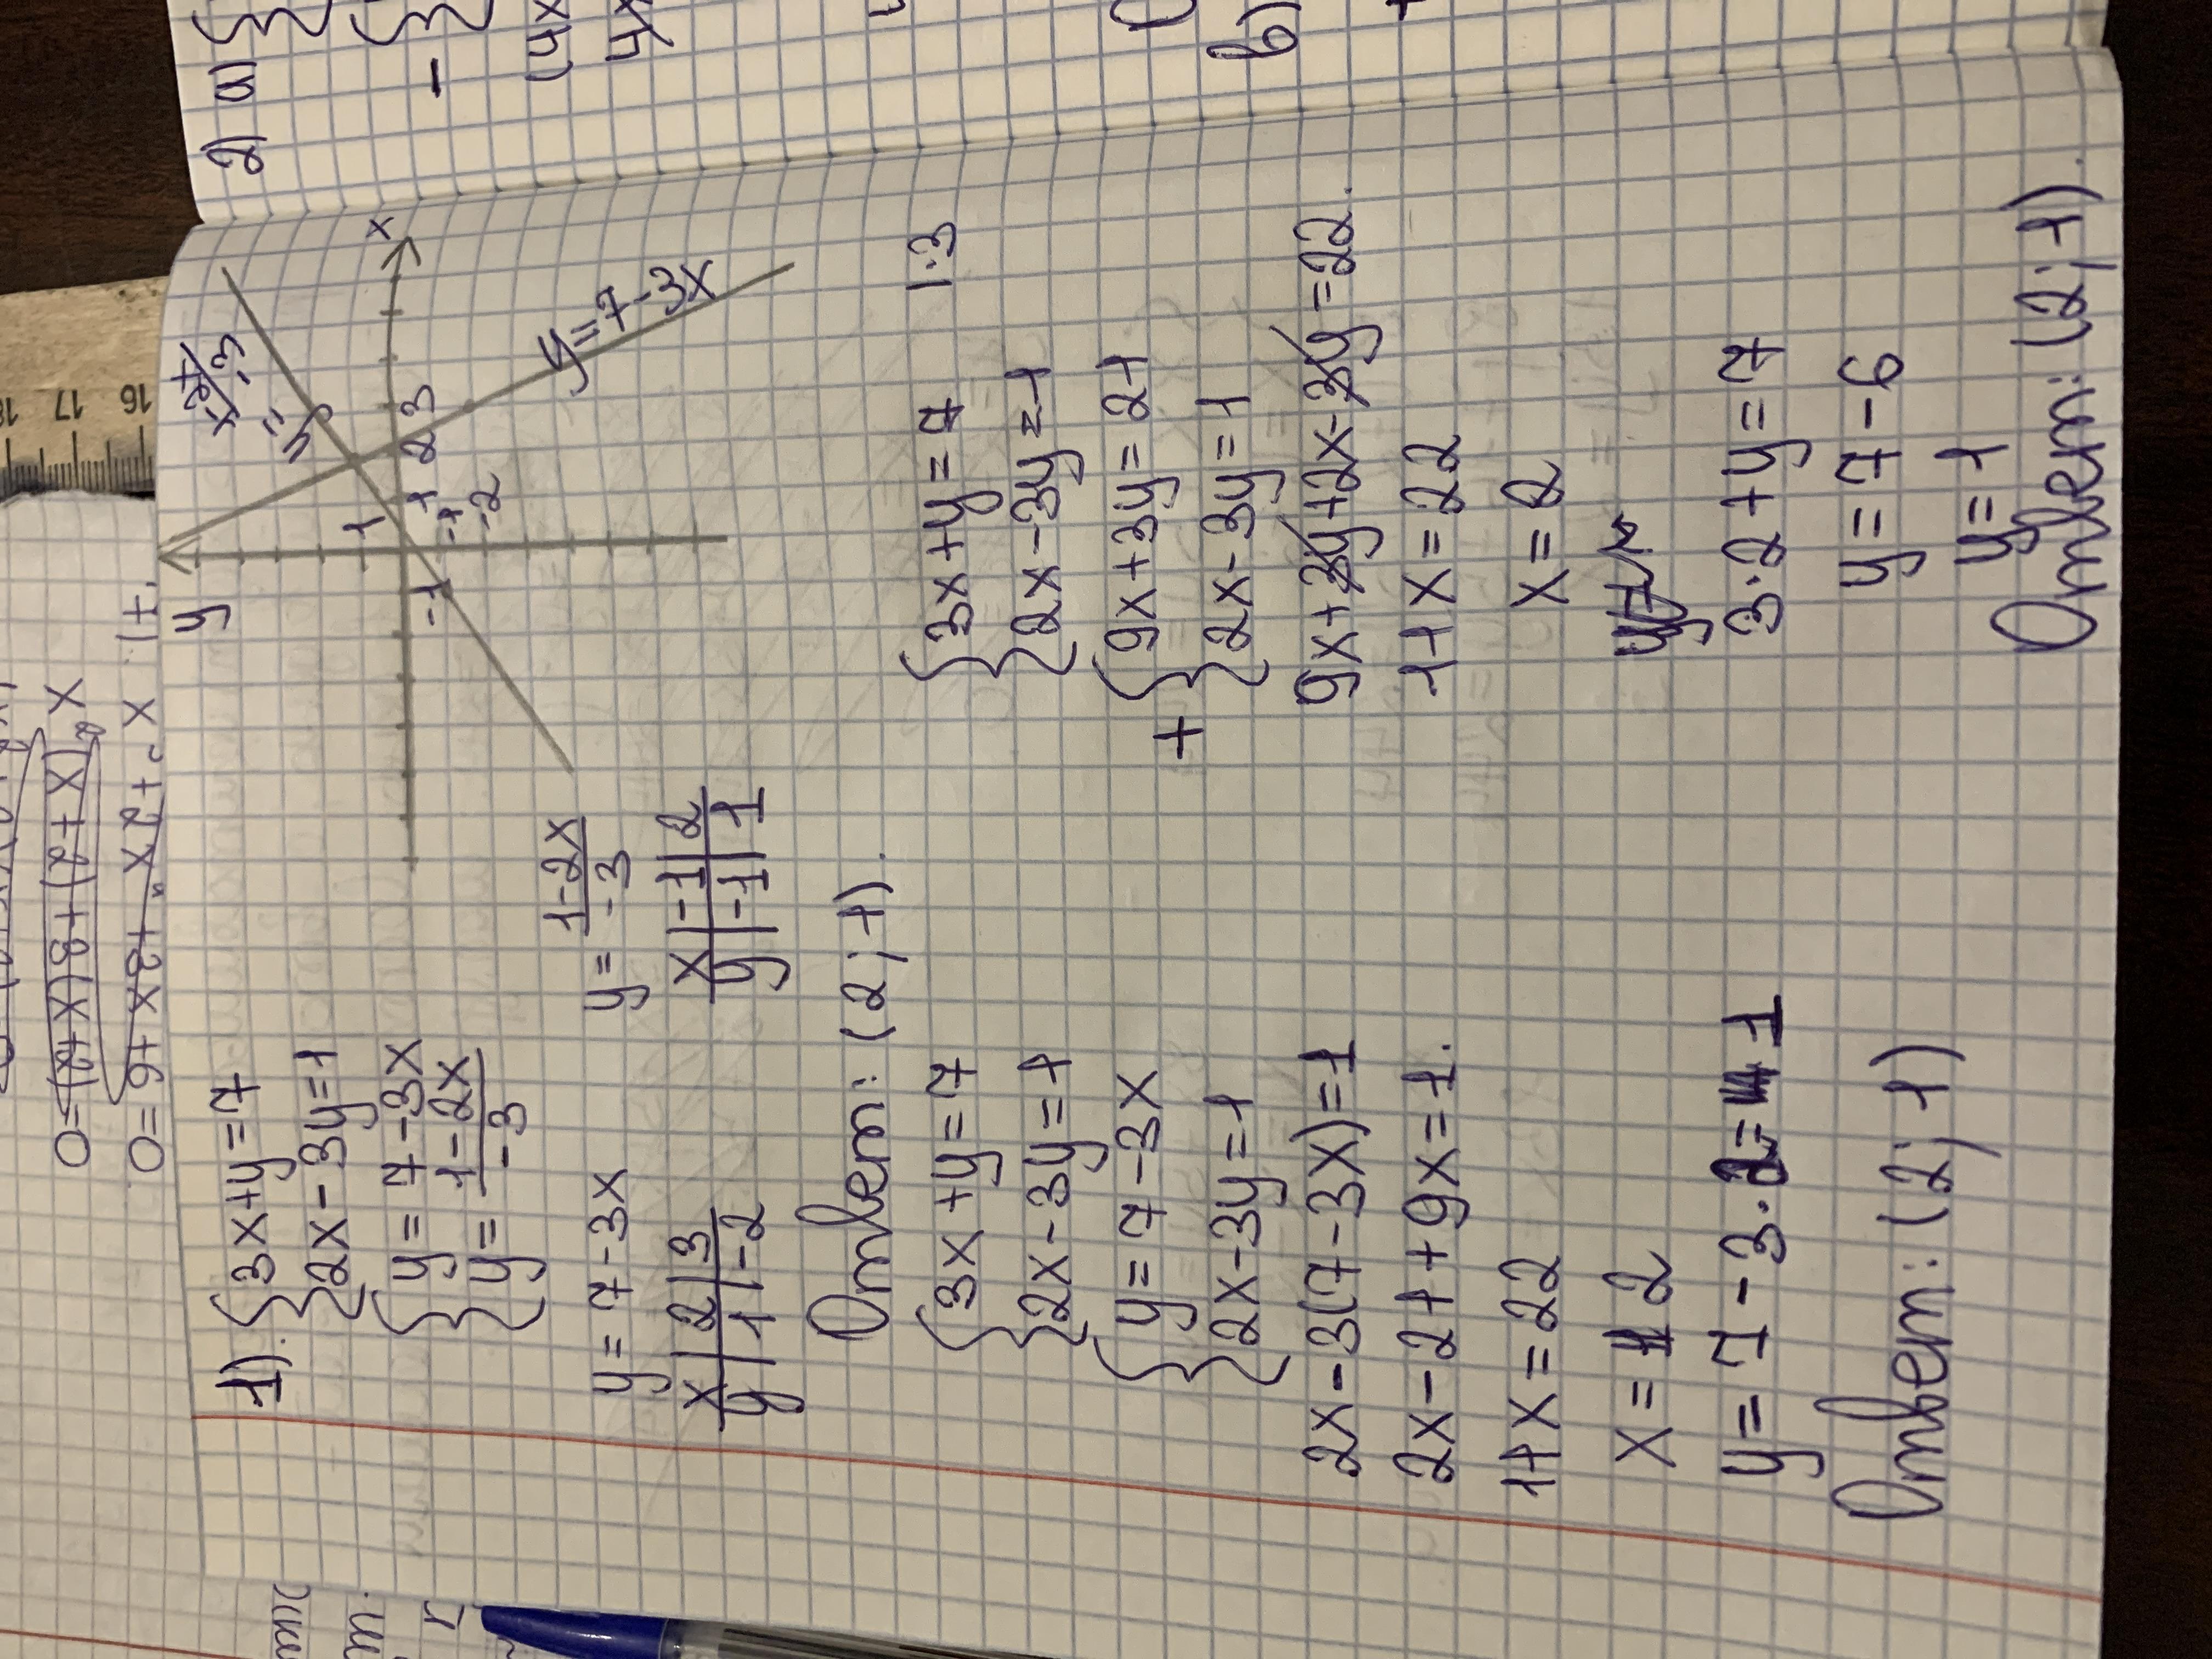 1). {3x+y=7
{2x-3y=1
{y=7-3x
{y=1-2x/-3
y=7-3x
x|2|3
y|1|-2
y=1-2x/-3
x|-1|2
y|-1|1
Ответ: (2;1).
y
x
1
1
2
3
-1
-1
-2
y=7-3x
{3x+y=7
{2x-3y=1
{y=7-3x
{2x-3y=1
2x-3(7-3x)=1
2x-21+9x=1.
11x=22
x=2
y=7-3·2=1
Ответ: (2;1)
{3x+y=7 |·3
{2x-3y=1
+{9x+3y=21
{2x-3y=1
9x+3y+2x-3y=22.
11x=22
x=2
3·2+y=7
y=7-6
y=1
Ответ: (2;1).
2) а) {
-{
(4x
4x
в)
16
17
18